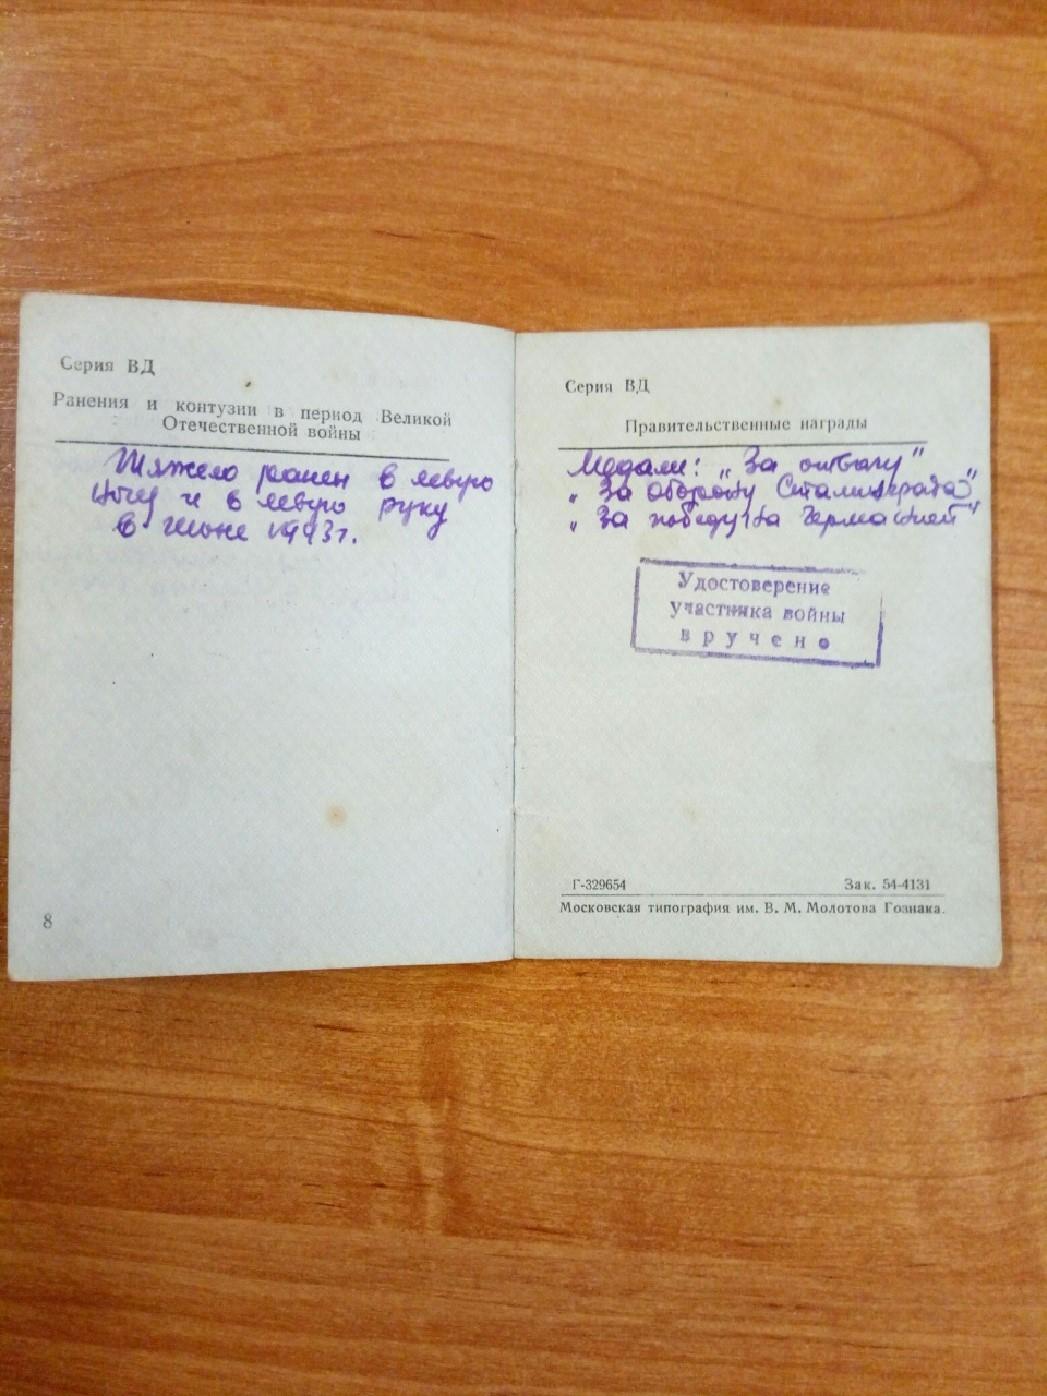 Серия ВД
Ранения и контузии в период Великой
Отечественной войны
Тяжело ранен в левую
ногу и в левую руку
в июне 1943г.
8
Серия ВД
Правительственные награды
Медали: „За отвагу"
„За оборону Сталинграда",
„За победу на Германией"
Удостоверение
участника войны
вручено
Г-329654 Зак. 54-4131
Московская типография им. В. М. Молотова Гознака.